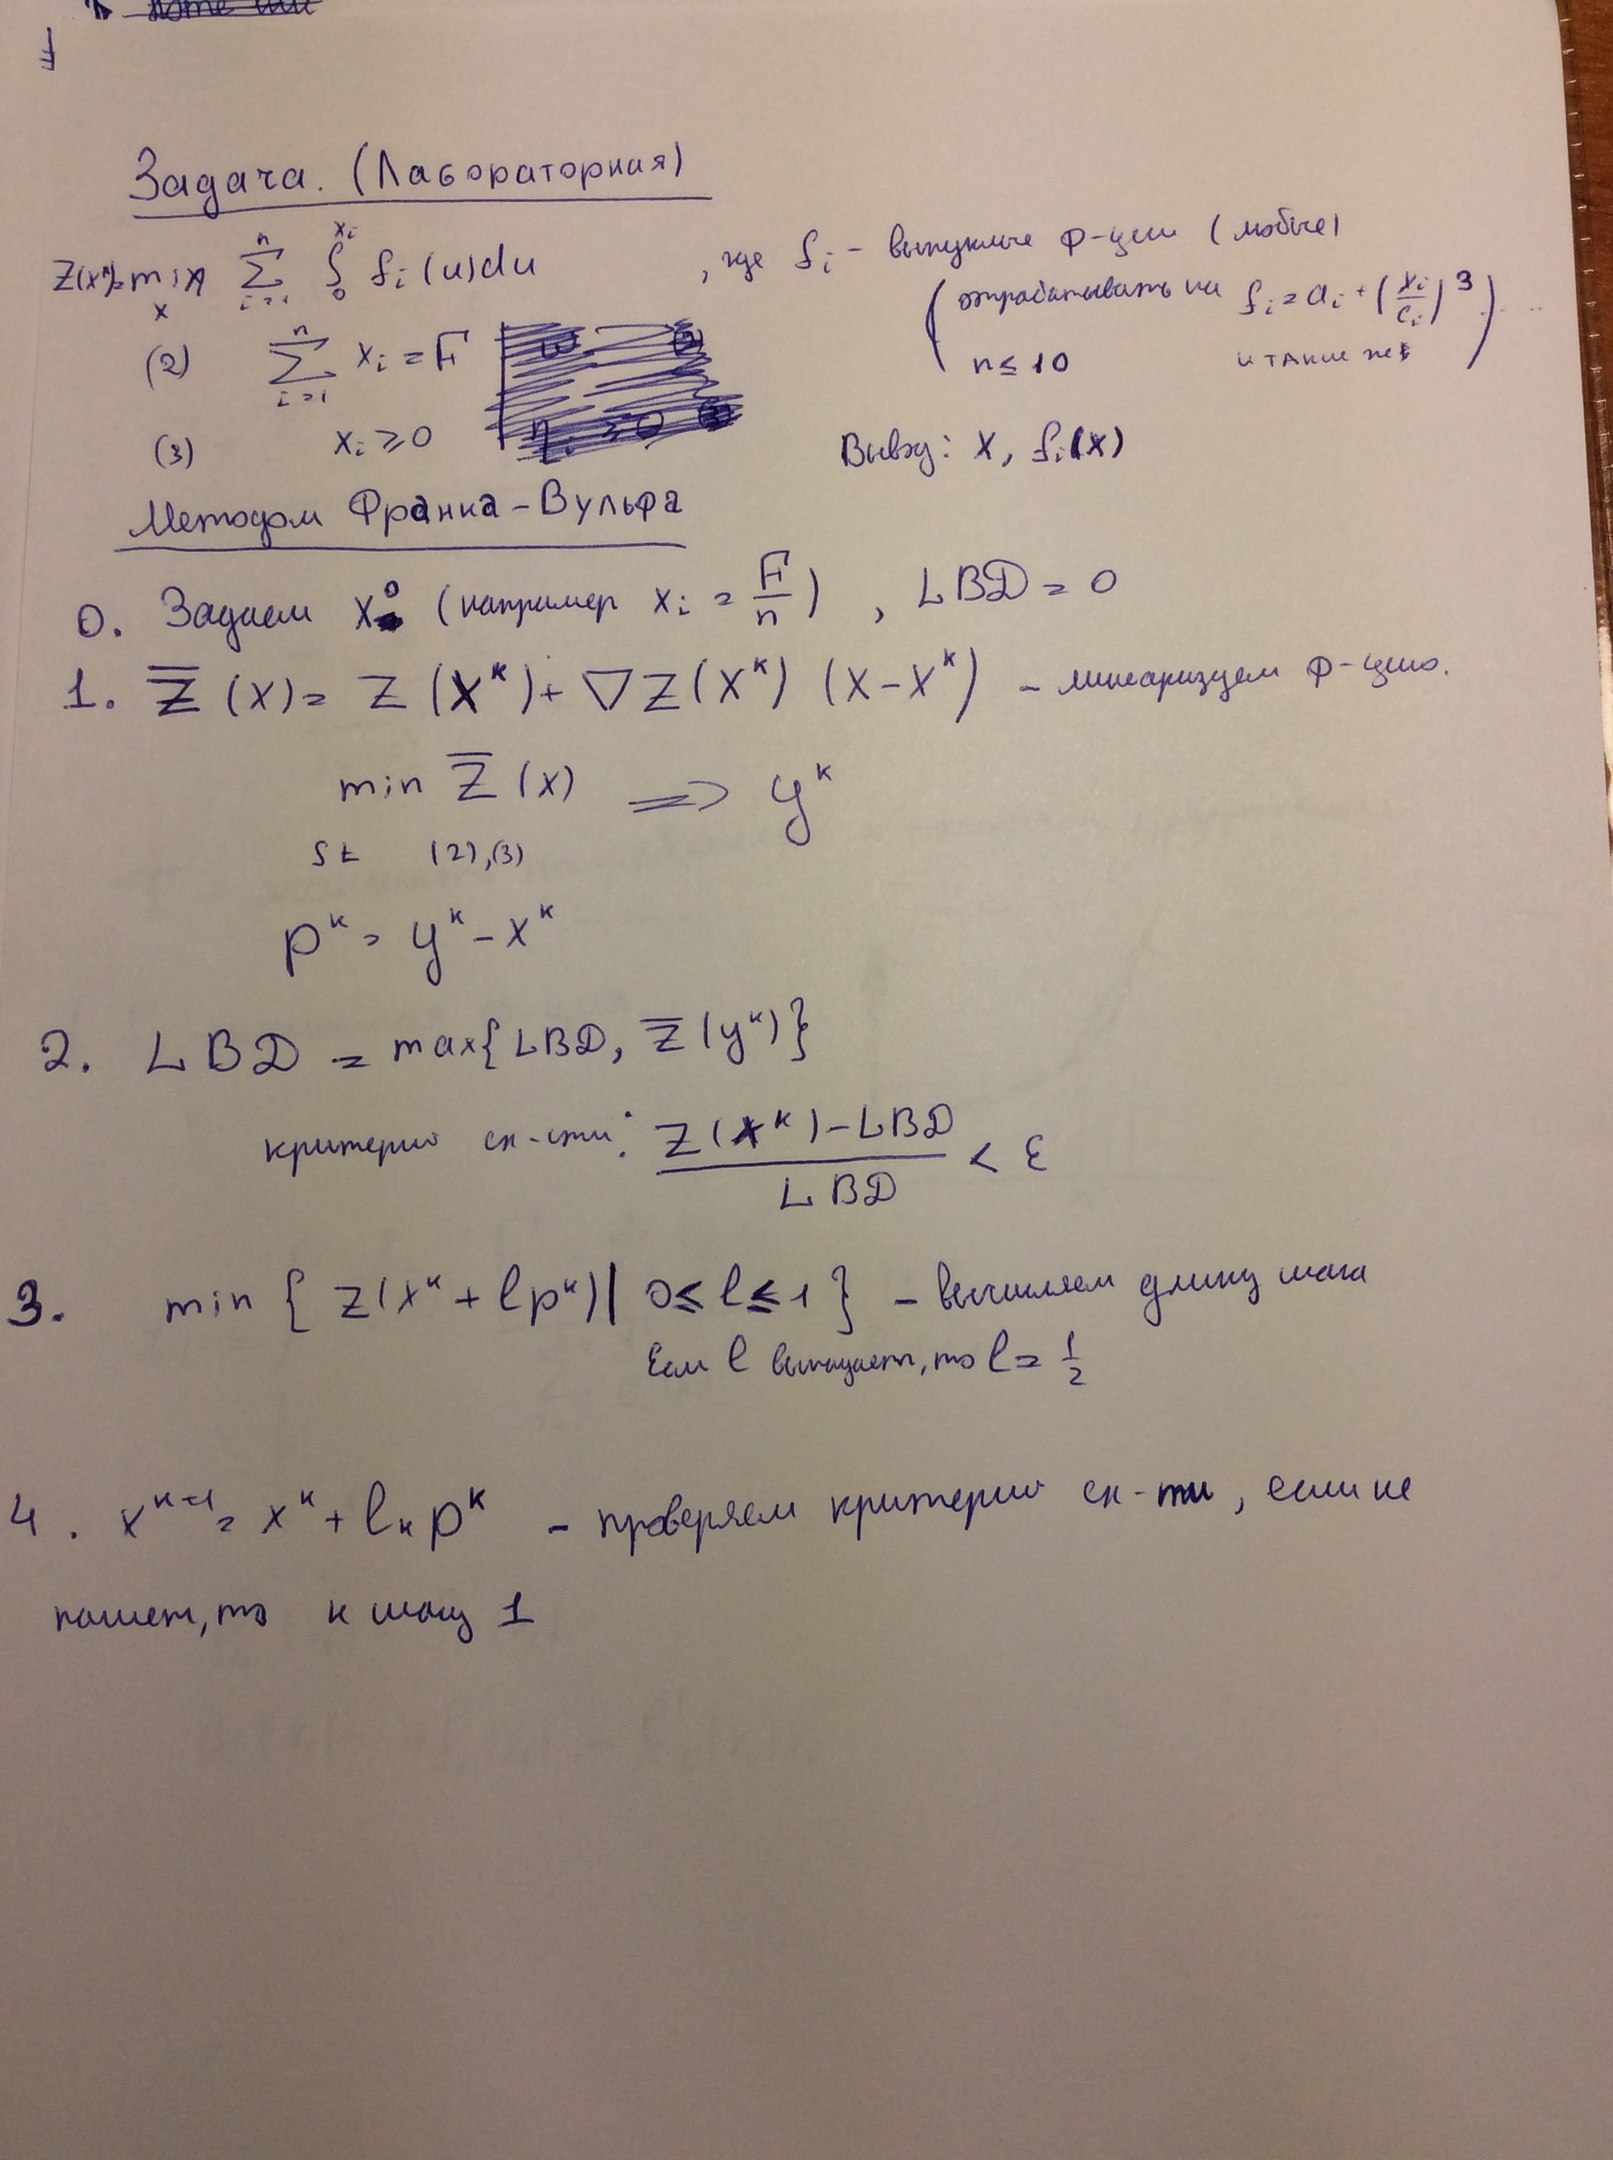 Задача. (Лабораторная)
Z(x)= min_x Σ_{i=1}^{n} ∫_0^{x_i} f_i (u)du , где f_i - выпуклые ф-ции (любые)
(отрабатывать на f_i = a_i + (x_i/c_i)^3) ...
(2) Σ_{i=1}^{n} x_i = F
n ≤ 10 и такие же
(3) x_i ≥ 0
Вывод: x, f_i(x)
Методом Франка-Вульфа
0. Задаем x^0 (например x_i = F/n) , LBD = 0
1. Z̄ (x) = Z (x^k) + ∇Z(x^k) (x-x^k) - линеаризуем ф-цию.
min Z̄ (x) ⟹ y^k
st (2),(3)
p^k = y^k - x^k
2. LBD = max{LBD, Z̄(y^k)}
критерий сх-сти: (Z(x^k)-LBD)/LBD < ε
3. min { Z(x^k + lp^k) | 0≤ l ≤ 1 } - вычисляем длину шага
Если l , то l = 1/2
4. x^{k+1} = x^k + l_k p^k - проверяем критерий сх-ти, если не
пашет, то к шагу 1